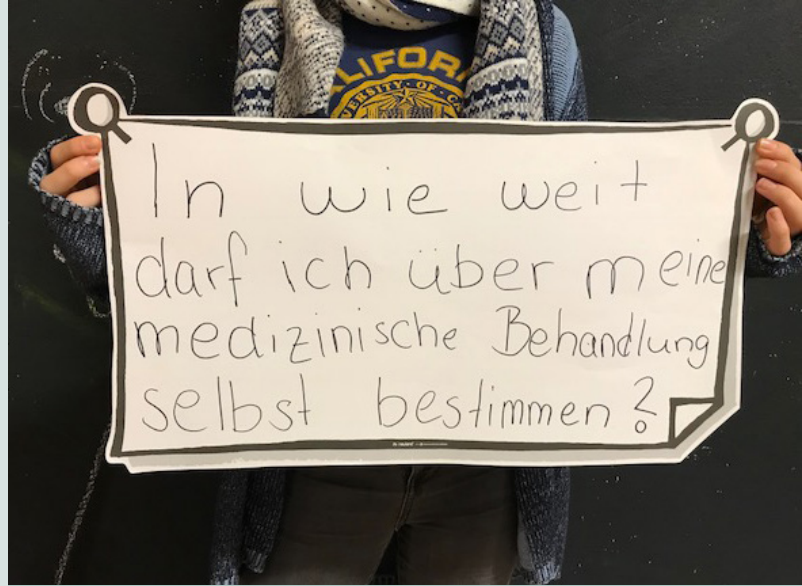 ALIFOR
ERSITY · OF · CA
In wie weit
darf ich über meine
medizinische Behandlung
selbst bestimmen?